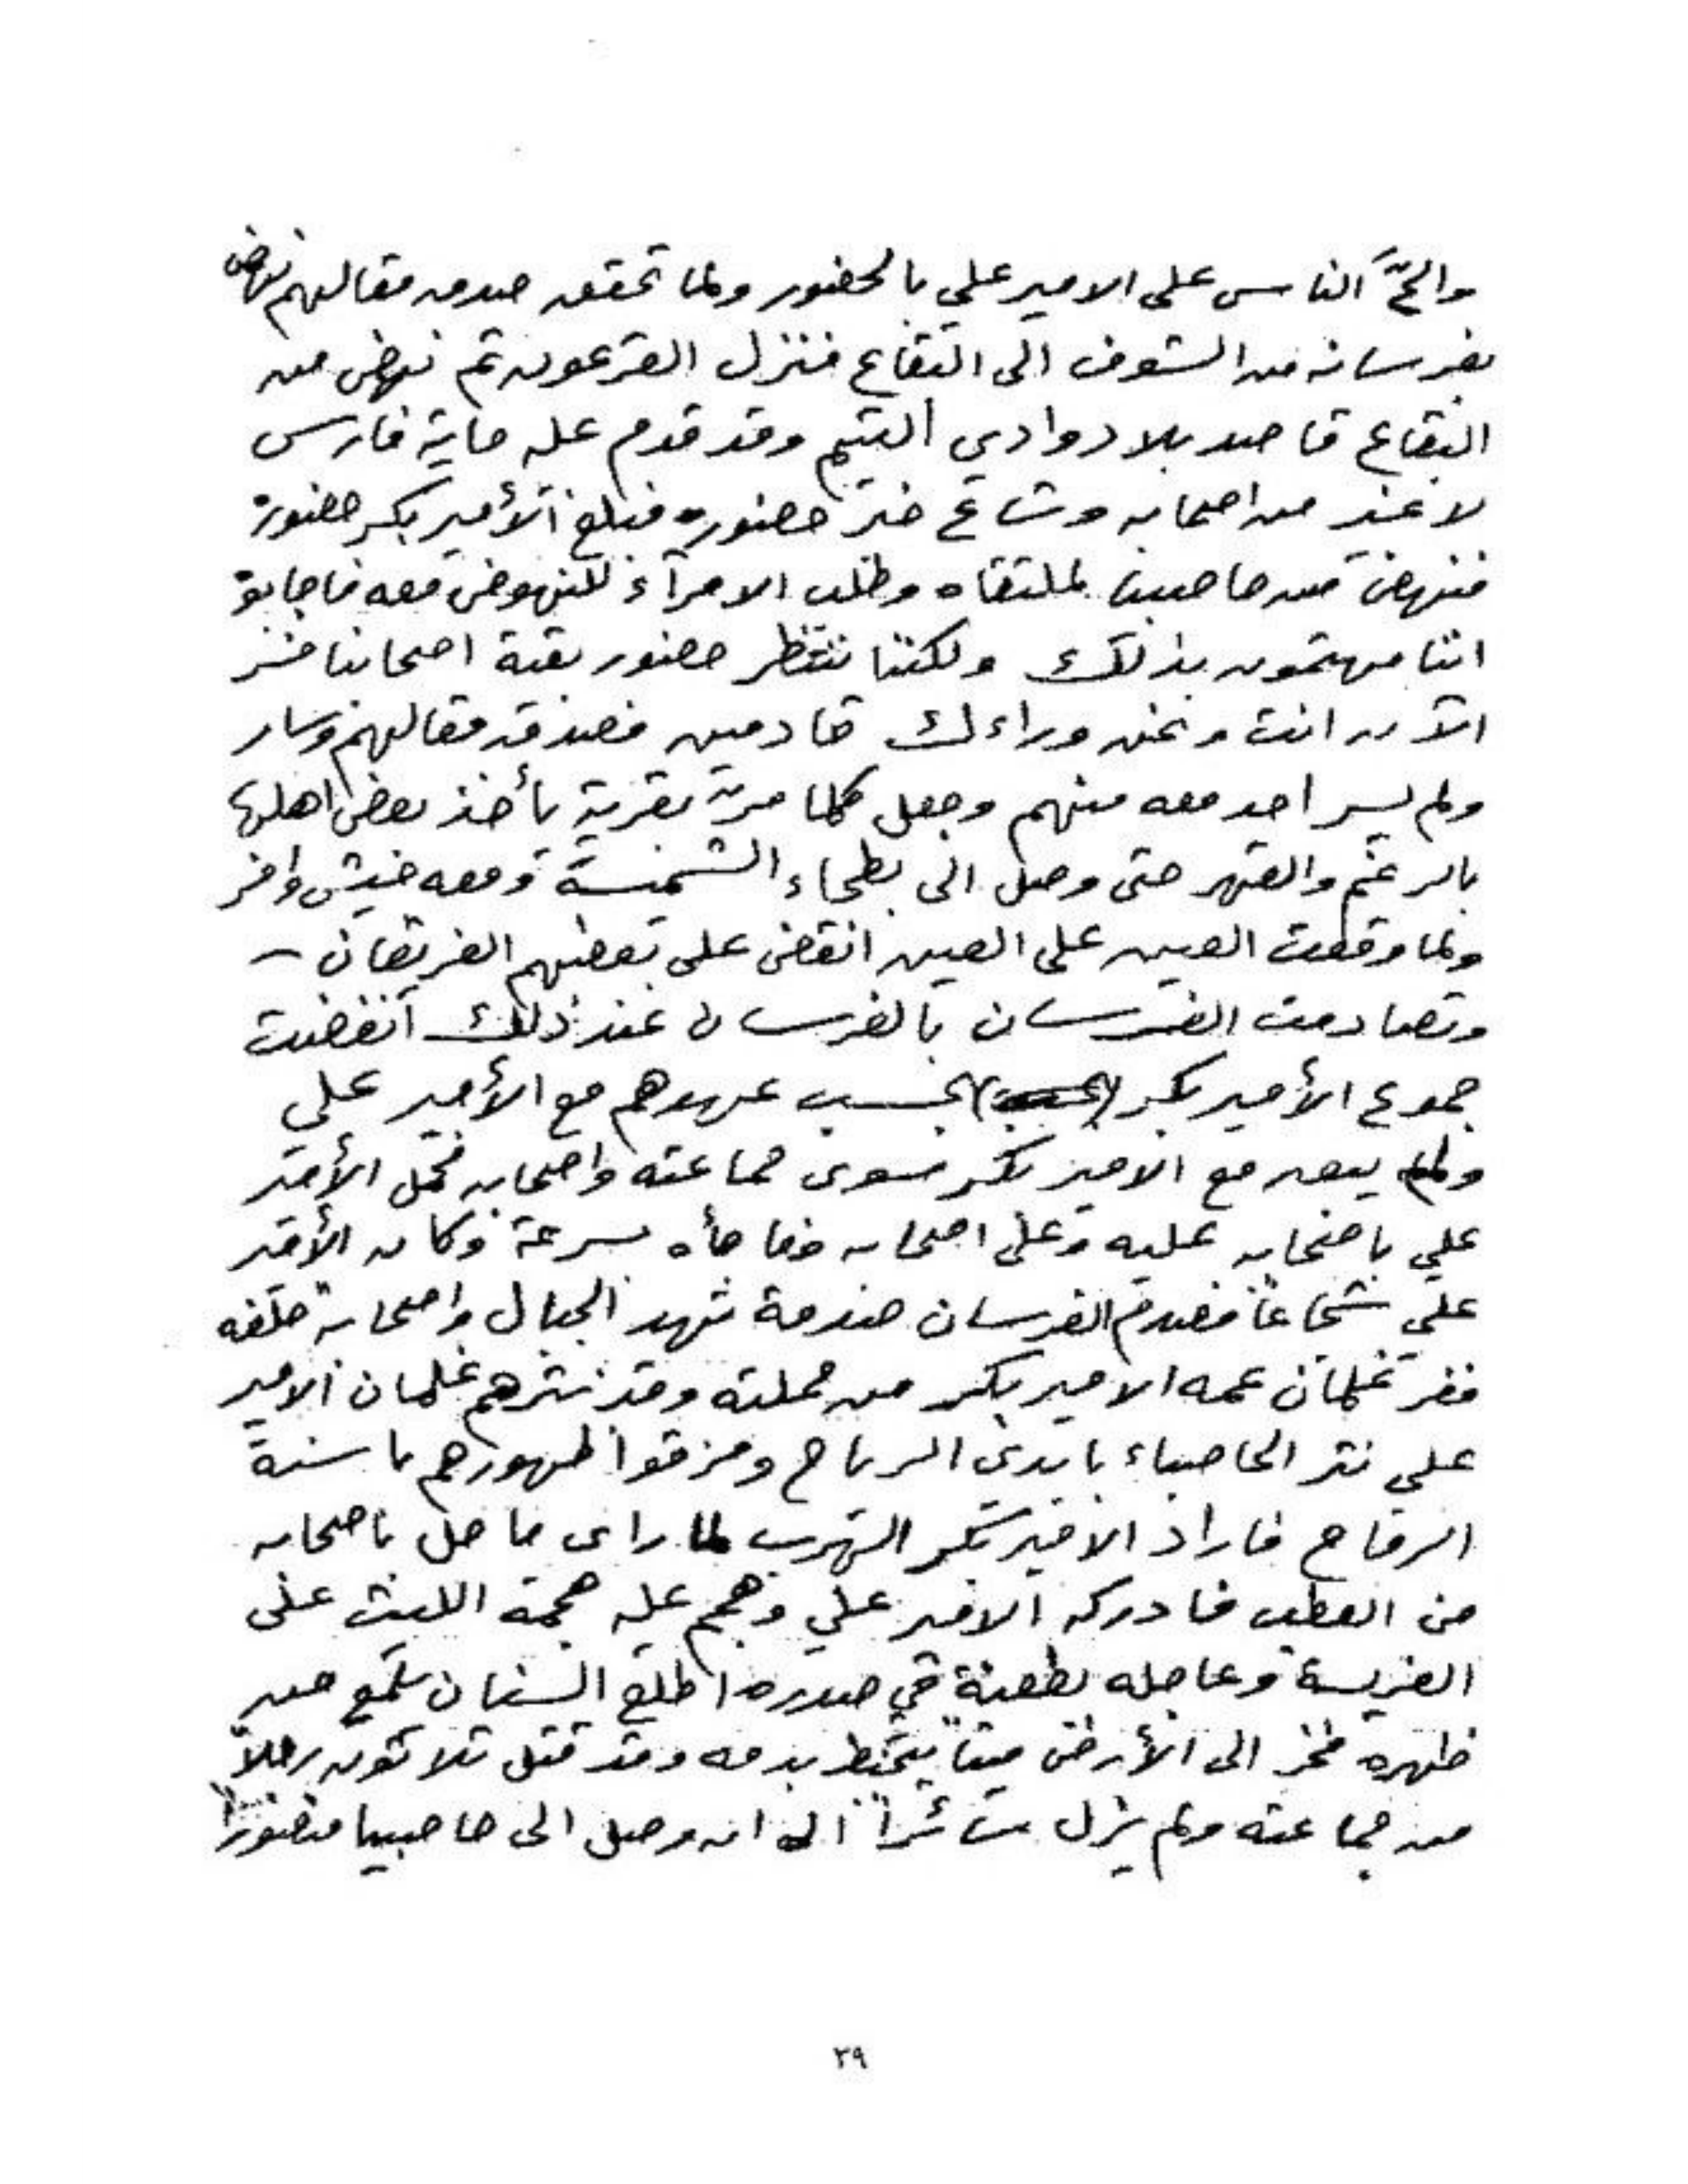 والحَّ الناس على الامير علي بالحضور ولما تحقق صدق مقالهم نهض
بفرسانه من الشوف الى البقاع فنزل القرعون ثم نهض من
البقاع قاصد بلاد وادي التيم وقد قدم عليه ماية فارس
لا غير من اصحابه وشاع خبر حضوره فبلغ الأمير بكر حضوره
فنهض من حاصبيا لملتقاه وطلب الامرآء للنهوض معه فاجابوه
اننا مهتمون بذلك ولكننا ننتظر حضور بقية اصحابنا فسر
الآن انت ونحن وراءك قادمين فصدق مقالهم وسار
ولم يسر احد معه منهم وجعل كلما مر بقرية يأخذ بعض اهلها
بالرغم والقهر حتى وصل الى بطحاء الشميسة ومعه جيش وافر
ولما وقعت العين على العين انقض على بعضهم الفريقان –
وتصادمت الفرسان بالفرسان عند ذلك انفضت
جموع الأمير بكر بحسب عهدهم مع الأمير علي
ولم يبق مع الامير بكر سوى جماعته واصحابه فحمل الأمير
علي باصحابه عليه وعلى اصحابه ففاجأه بسرعة وكان الأمير
علي شجاعاً فصدم الفرسان صدمة تهد الجبال واصحابه خلفه
ففر غلمان عمه الامير بكر من حملته وقد نثرهم غلمان الامير
علي نثر الحاصباء بايدي الرياح ومزقوا ظهورهم باسنة
الرماح فاراد الامير بكر الهرب لما راى ما حل باصحابه
من العطب فادركه الامير علي وهجم عليه هجمة الليث على
الفريسة وعاجله بطعنة في صدره اطلع السنان يلمع من
ظهره فخر الى الأرض ميتاً يتخبط بدمه وقد قتل ثلاثون رجلاً
من جماعته ولم يزل سائراً الى ان وصل الى حاصبيا منصوراً
٣٩